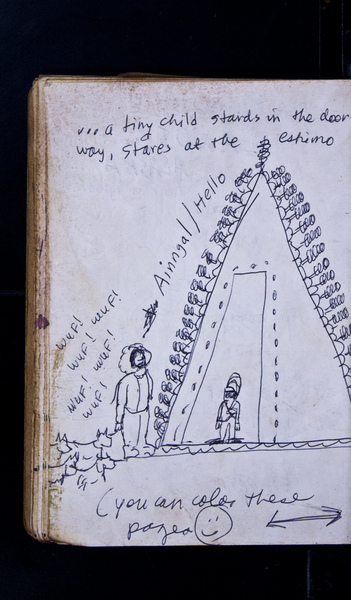 ... a tiny child stands in the door
way, stares at the eskimo
Ainngal//Hello
WUF!
WUF! WUF!
WUF! WUF!
WUF!
(you can color these
pages